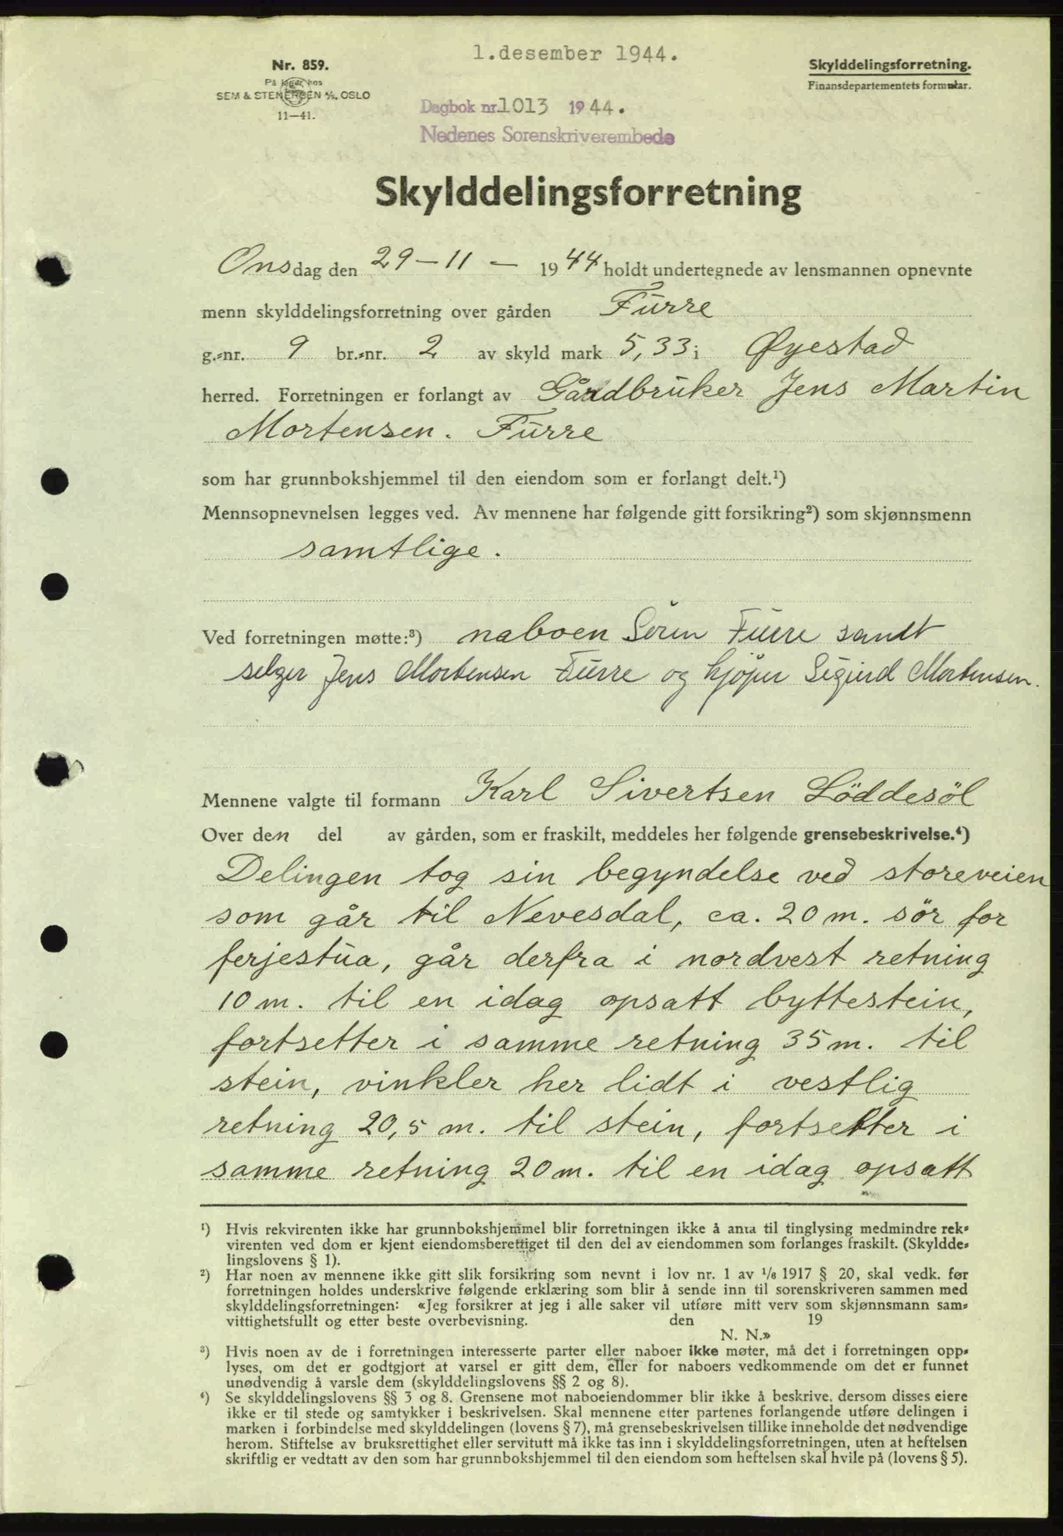 1.desember 1944.
Nr. 859.
På lager hos
SEM & STENERSEN A/S, OSLO
11—41.
Skylddelingsforretning.
Finansdepartementets formular.
Dagbok nr.1013 1944.
Nedenes Sorenskriverembede
Skylddelingsforretning
Onsdag den 29-11- 1944 holdt undertegnede av lensmannen opnevnte
menn skylddelingsforretning over gården Furre
g.-nr. 9 br.-nr. 2 av skyld mark 5,33 i Øyestad
herred. Forretningen er forlangt av Gårdbruker Jens Martin
Mortensen. Furre
som har grunnbokshjemmel til den eiendom som er forlangt delt.¹)
Mennsopnevnelsen legges ved. Av mennene har følgende gitt forsikring²) som skjønnsmenn
samtlige.
Ved forretningen møtte:³) naboen Sörin Furre samt
selger Jens Mortensen Furre og kjöper Sigurd Mortensen.
Mennene valgte til formann Karl Sivertsen Löddesöl
Over den del av gården, som er fraskilt, meddeles her følgende grensebeskrivelse.⁴)
Delingen tog sin begyndelse ved storeveien
som går til Nevesdal, ca. 20 m. sör for
ferjestua, går derfra i nordvest retning
10 m. til en idag opsatt byttestein,
fortsetter i samme retning 35 m. til
stein, vinkler her lidt i vestlig
retning 20,5 m. til stein, fortsetter i
samme retning 20 m. til en idag opsatt
¹) Hvis rekvirenten ikke har grunnbokshjemmel blir forretningen ikke å anta til tinglysing medmindre rek-
virenten ved dom er kjent eiendomsberettiget til den del av eiendommen som forlanges fraskilt. (Skyldde-
lingslovens § 1).
²) Har noen av mennene ikke gitt slik forsikring som nevnt i lov nr. 1 av 1/6 1917 § 20, skal vedk. før
forretningen holdes underskrive følgende erklæring som blir å sende inn til sorenskriveren sammen med
skylddelingsforretningen: «Jeg forsikrer at jeg i alle saker vil utføre mitt verv som skjønnsmann sam-
vittighetsfullt og etter beste overbevisning. den 19
N. N.»
³) Hvis noen av de i forretningen interesserte parter eller naboer ikke møter, må det i forretningen opp-
lyses, om det er godtgjort at varsel er gitt dem, eller for naboers vedkommende om det er funnet
unødvendig å varsle dem (skylddelingslovens §§ 2 og 8).
⁴) Se skylddelingslovens §§ 3 og 8. Grensene mot naboeiendommer blir ikke å beskrive, dersom disses eiere
ikke er til stede og samtykker i beskrivelsen. Skal mennene etter partenes forlangende utføre delingen i
marken i forbindelse med skylddelingen (lovens § 7), må grensebeskrivelsen tillike inneholde det nødvendige
herom. Stiftelse av bruksrettighet eller servitutt må ikke tas inn i skylddelingsforretningen, uten at heftelsen
skriftlig er vedtatt av den som har grunnbokshjemmel til den eiendom som heftelsen skal hvile på (lovens § 5).